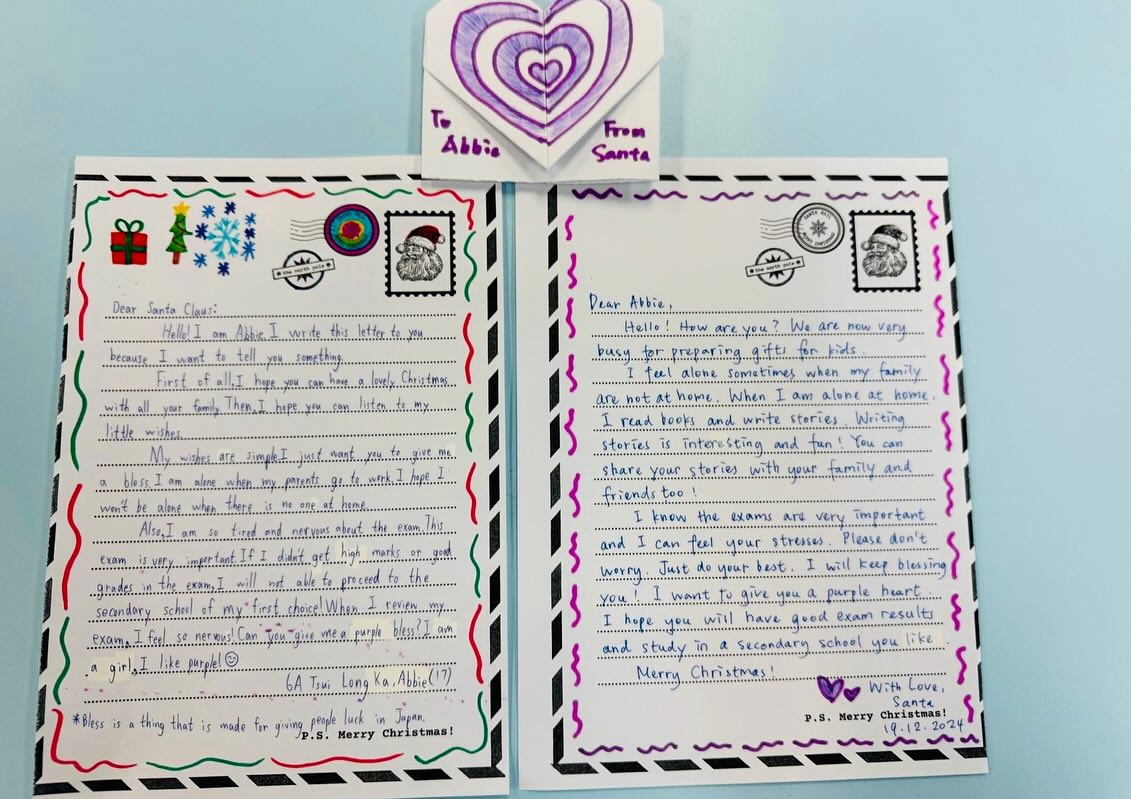 To
Abbie
From
Santa
the north pole
Dear Santa Claus:
Hello! I am Abbie. I write this letter to you
because I want to tell you something.
First of all, I hope you can have a lovely Christmas
with all your family. Then, I hope you can listen to my
little wishes.
My wishes are simple. I just want you to give me
a bless. I am alone when my parents go to work. I hope I
won't be alone when there is no one at home.
Also, I am so tired and nervous about the exam. This
exam is very important. If I didn't get high marks or good
grades in the exam, I will not able to proceed to the
secondary school of my first choice! When I review my
exam, I feel so nervous! Can you give me a purple bless? I am
a girl, I like purple!
6A Tsui Long Ka, Abbie (17)
*Bless is a thing that is made for giving people luck in Japan.
P.S. Merry Christmas!
SANTA MAIL
MERRY CHRISTMAS
the north pole
Dear Abbie,
Hello! How are you? We are now very
busy for preparing gifts for kids.
I feel alone sometimes when my family
are not at home. When I am alone at home,
I read books and write stories. Writing
stories is interesting and fun! You can
share your stories with your family and
friends too!
I know the exams are very important
and I can feel your stresses. Please don't
worry. Just do your best. I will keep blessing
you! I want to give you a purple heart.
I hope you will have good exam results
and study in a secondary school you like
Merry Christmas!
With Love,
Santa
P.S. Merry Christmas!
19.12.2024